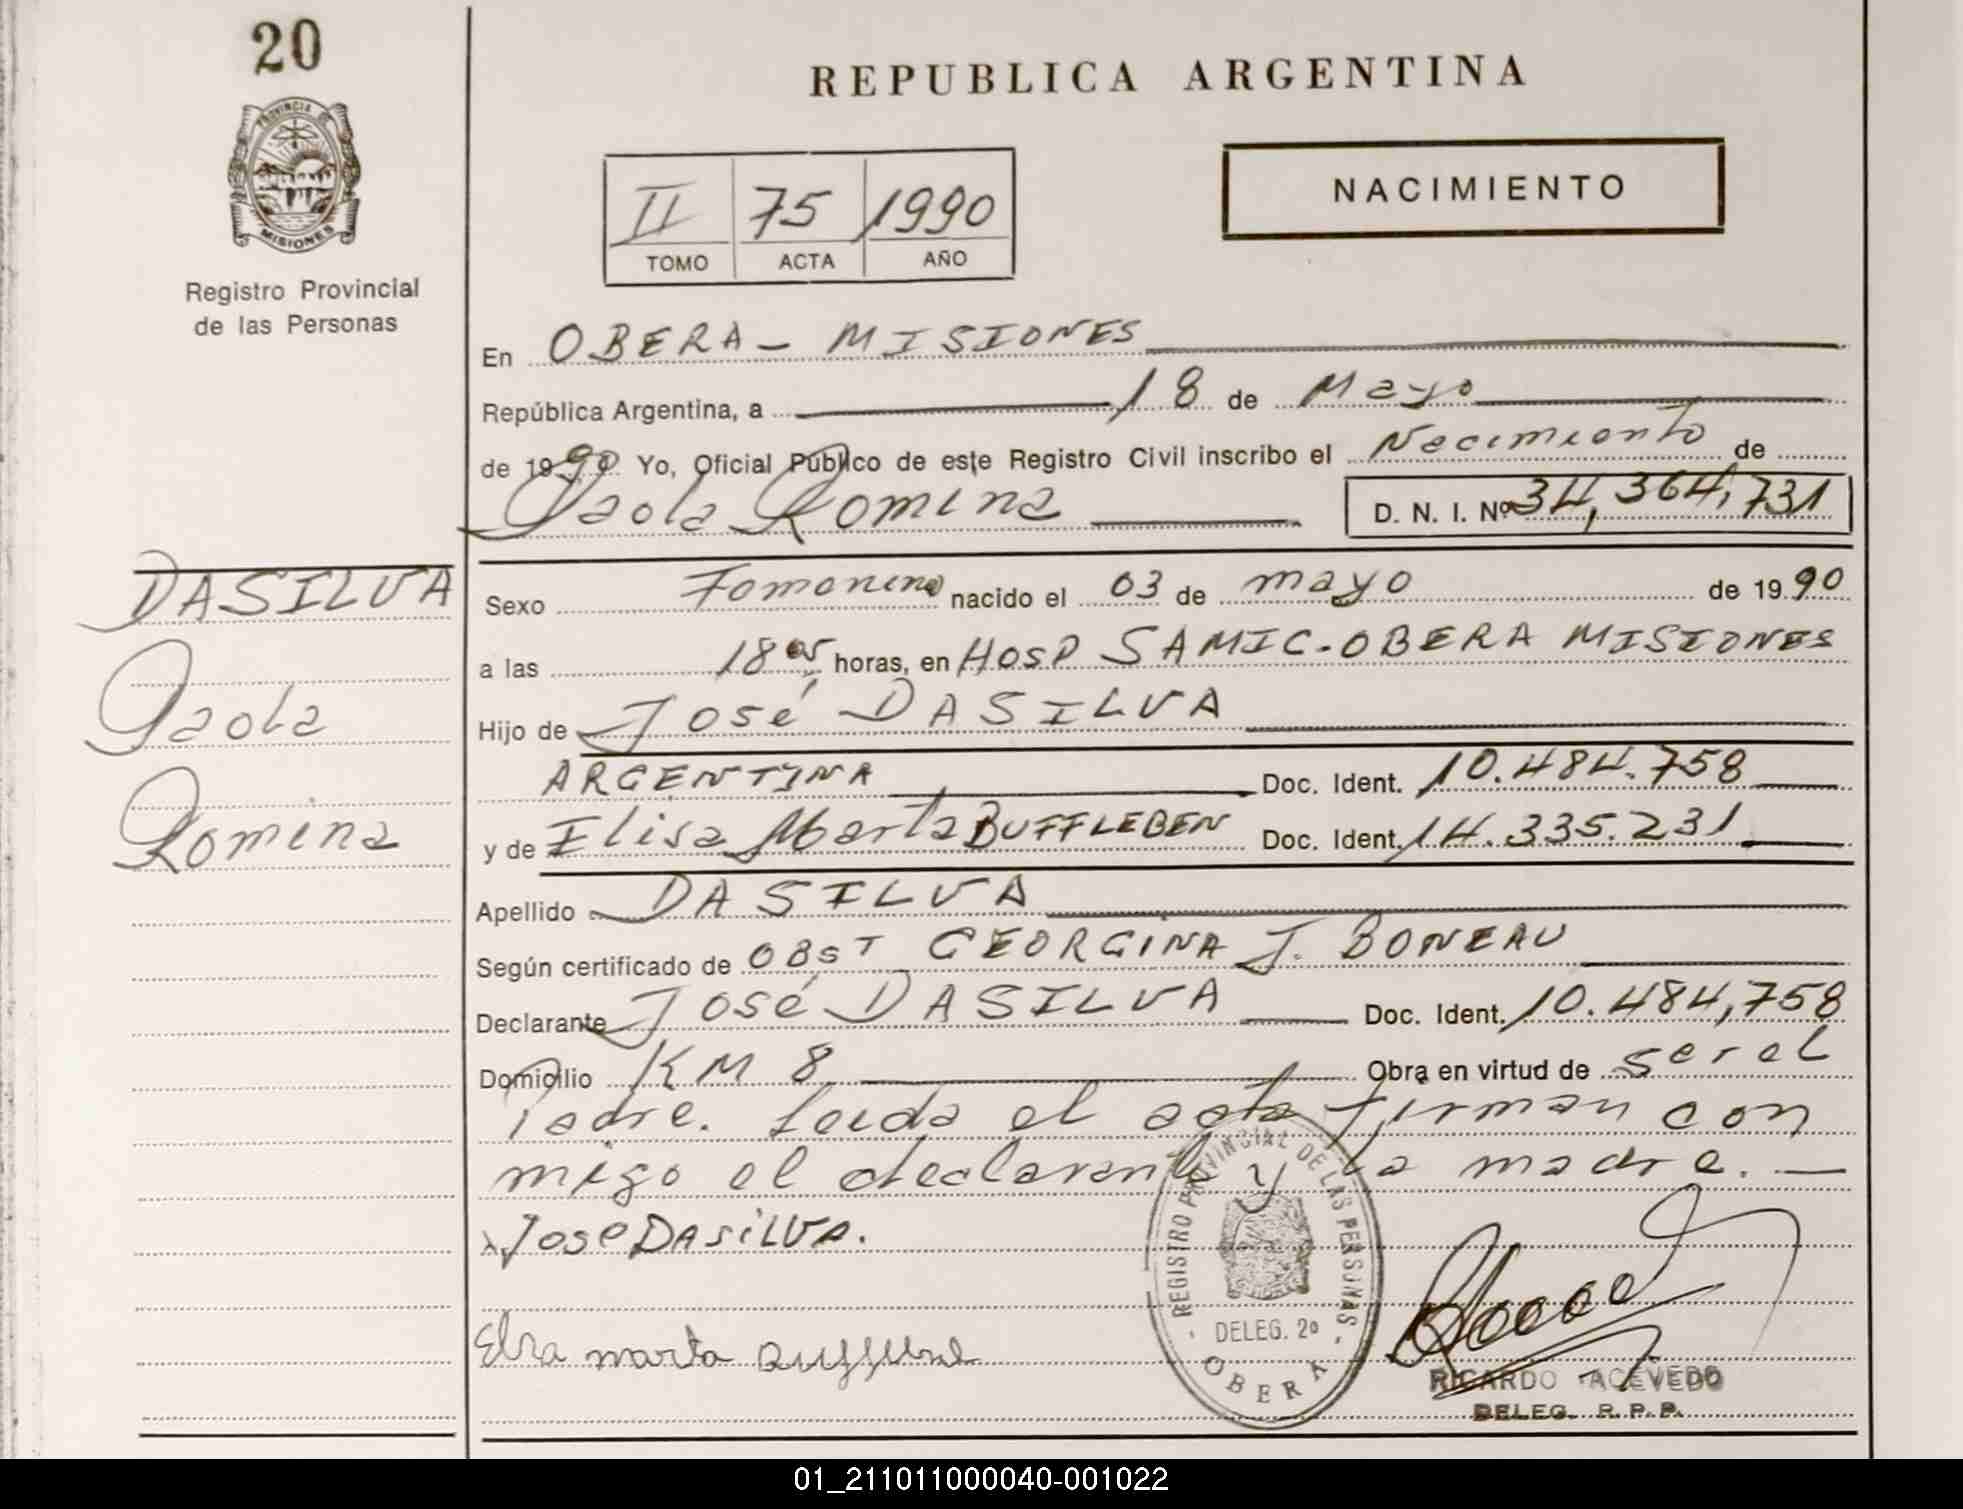 20
PROVINCIA DE
MISIONES
Registro Provincial
de las Personas
REPUBLICA ARGENTINA
NACIMIENTO
II 75 1990
TOMO ACTA AÑO
En OBERA - MISIONES
República Argentina, a 18 de Mayo
de 1990. Yo, Oficial Público de este Registro Civil inscribo el Nacimiento de
Paola Romina D. N. I. Nº 34,364,731
DASILVA
Paola
Romina
Sexo Femenino nacido el 03 de mayo de 1990
a las 18 05 horas, en HOSP SAMIC-OBERA MISIONES
Hijo de José DASILVA
ARGENTINA Doc. Ident. 10.484.758
y de Elisa Marta BUFFLEBEN Doc. Ident. 14.335.231
Apellido DASILVA
Según certificado de OBST GEORGINA J. BONEAU
Declarante José DASILVA Doc. Ident. 10.484,758
Domicilio KM 8 Obra en virtud de ser el
Padre. Leida el acta firman con
migo el declarante y la madre.
x Jose DASiLVA.
marta
REGISTRO PROVINCIAL DE LAS PERSONAS
DELEG. 2º
OBERA
RICARDO ACEVEDO
DELEG. R.P.P.
01_211011000040-001022